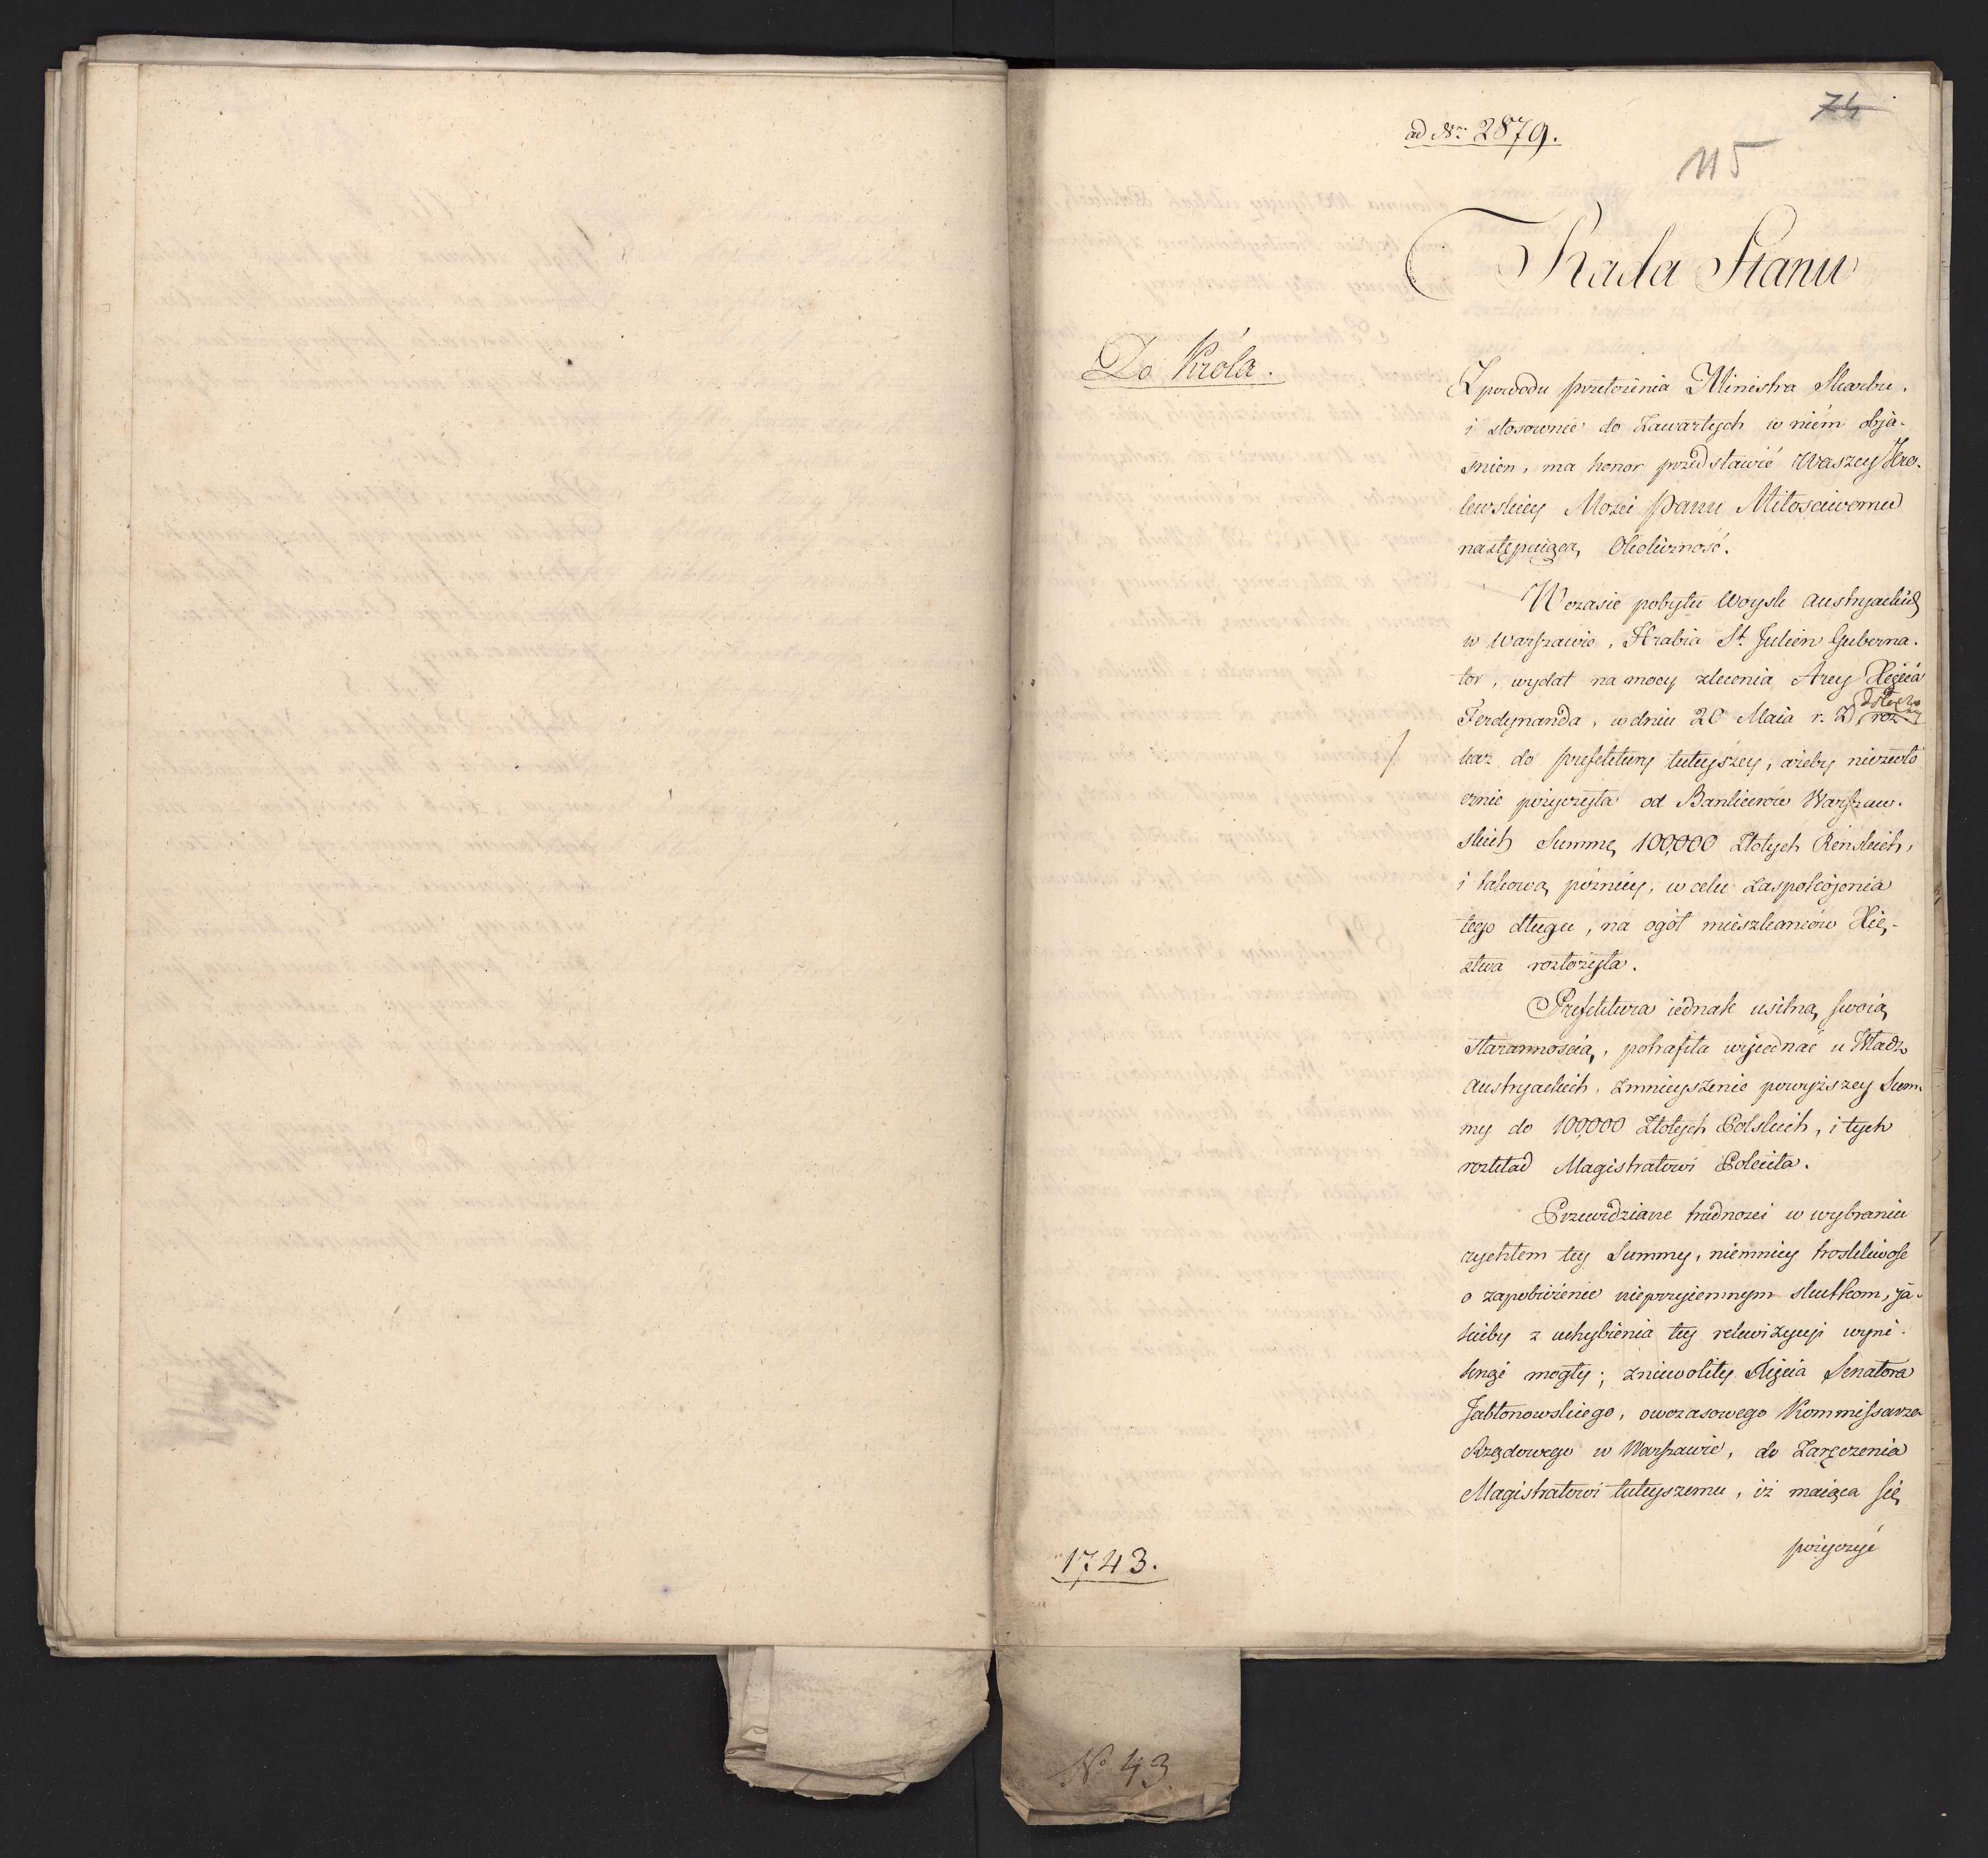 ad Nr. 2879.
74
115
Rada Stanu
Do Króla.
Z powodu przełożenia Ministra Skarbu,
i stosownie do zawartych w niém obja-
śnien, ma honor przedstawić Waszey Kró-
lewskiey Mości Panu Miłosciwemu
następuiącą Okoliczność.
W czasie pobytu Woysk Austryackich
w Warszawie, Hrabia St. Julien Guberna-
tor, wydał na mocy zlecenia Arcy Xięcia
Ferdynanda, w dniu 20 Maia r. z. roz-
kaz do prefektury tuteyszey, ażeby niezwło
cznie pożyczyła od Bankierów Warszaw-
skich Summę 100,000 Złotych Reńskich,
i takową pózniey, w celu zaspokojenia
tego długu, na ogół mieszkańców Xię-
stwa rozłożyła.
Prefektura iednak usilną swoią
starannością, potrafiła wyiednać u Władz
Austryackich, zmnieyszenie powyższey Sum-
my do 100,000 Złotych Polskich, i tych
rozkład Magistratowi Poleciła.
Przewidziane trudnosci w wybraniu
rychłem tey Summy, niemniey troskliwość
o zapobieżenie nieprzyiemnym skutkom, ja-
kieby z uchybienia tey rekwizycyi wyni-
knąć mogły; zniewoliły Xięcia Senatora
Jabłonowskiego, owczasowego Kommissarza
Rządowego w Warszawie, do zaręczenia
Magistratowi tuteyszemu, iż maiąca się
pożyczyć
1743.
No 43